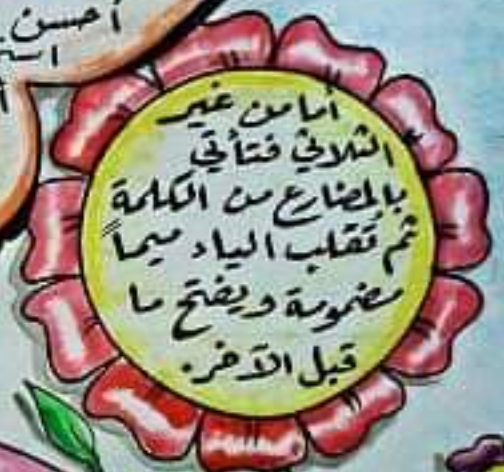 أحسن.
أما من غير
الثلاثي فتأتي
بالمضارع من الكلمة
ثم تُقلب الياء ميماً
مضمومة ويفتح ما
قبل الآخر.